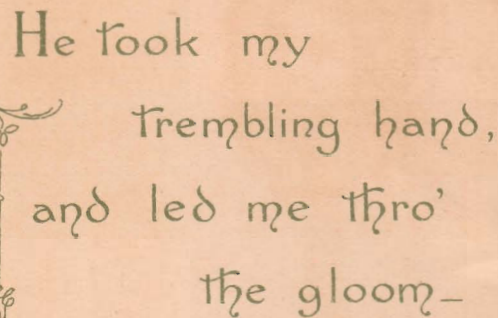 He took my
trembling hand,
and led me thro'
the gloom—